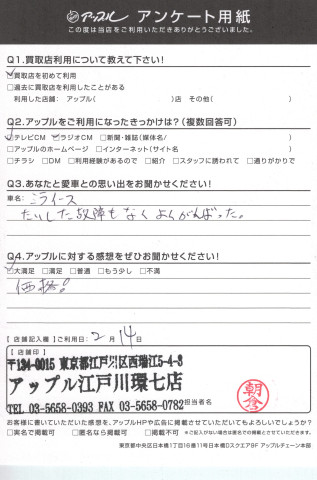 アップル アンケート用紙
この度は当店をご利用いただきありがとうございました。
Q1.買取店利用について教えて下さい!
☑買取店を初めて利用
□過去に買取店を利用したことがある
利用した店舗: アップル( )店 その他( )
Q2.アップルをご利用になったきっかけは?(複数回答可)
☑テレビCM ☑ラジオCM □新聞・雑誌(媒体名/ )
□アップルのホームページ □インターネット(サイト名 )
□チラシ □DM □利用経験があるので □紹介 □スタッフに誘われて □通りがかりで
Q3.あなたと愛車との思い出をお聞かせください!
車名: ミライース
たいした故障もなくよくがんばった。
Q4.アップルに対する感想をぜひお聞かせください!
☑大満足 □満足 □普通 □もう少し □不満
価格!
【店舗記入欄】ご利用日: 2月14日
【店舗印】
〒134-0015 東京都江戸川区西瑞江5-4-3
アップル江戸川環七店
TEL 03-5658-0393 FAX 03-5658-0782
担当者名
朝倉
お客様に書いていただいた感想を、アップルHPや広告に掲載させていただいてもよろしいでしょうか?
□実名で掲載可 □匿名なら掲載可 □掲載不可 ※ご記入がない場合は匿名での掲載とさせていただきます。
東京都中央区日本橋1丁目16番11号日本橋Dスクエア8F アップルチェーン本部